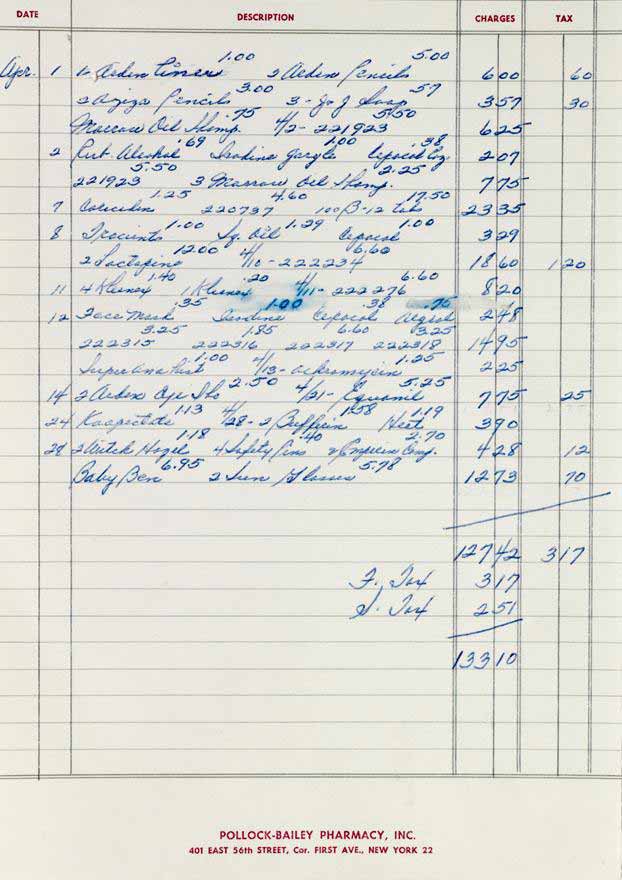 DATE DESCRIPTION CHARGES TAX
1.00 5.00
Apr. 1 1- Arden Liner 2 Arden Pencils 6 00 60
3.00 .57
2 Aziza Pencils 3- J&J Soap 3 57 30
.75 5.50
Marrow Oil Shomp. 4/2- 221923 6 25
.69 1.00 .38
2 Rub. Alcohol Iodine gargle Cepacol Loz. 2 07
5.50 2.25
221923 3 Marrow Oil Shomp. 7 75
1.25 4.60 17.50
7 Coricidin 220737 100 B-12 tabs 23 35
1.00 1.29 1.00
8 Trocinets Oil Cepacol 3 29
12.00 6.60
2 Lactopine 4/10- 222234 18 60 1 20
1.40 .20 6.60
11 4 Kleenex 1 Kleenex 4/11- 222276 8 20
.35 1.00 .38 .75
12 Face Mask Iodine Cepacol Argyrol 2 48
3.25 1.85 6.60 3.25
222315 222316 222317 222318 14 95
1.00 1.25
Supertah 4/13- Achromycin 2 25
2.50 5.25
14 2 Arden 4/21- Equanil 7 75 25
1.13 1.58 1.19
24 Kaopectate 4/28- 2 Bufferin Heet 3 90
1.18 .40 2.70
28 2 Witch Hazel 4 Safety Pins 2 Empirin Comp. 4 28 12
6.95 5.78
Baby Ben 2 Sun Glasses 12 73 70
127 42 3 17
F. Tax 3 17
S. Tax 2 51
133 10
POLLOCK-BAILEY PHARMACY, INC.
401 EAST 56th STREET, Cor. FIRST AVE., NEW YORK 22